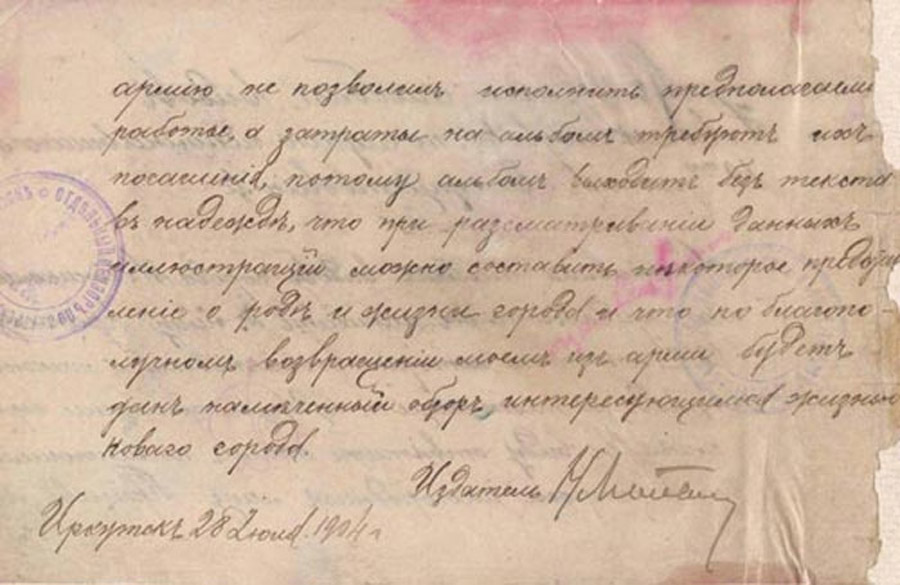 армію не позволилъ исполнить предполагаему
работы, а затраты на альбомъ требуютъ ихъ
погашенія, потому альбомъ выходитъ безъ текста
въ надеждѣ, что при разсматриваніи данныхъ
иллюстрацій можно составить нѣкоторое предста
леніе о родѣ и жизни города и что по благопо-
лучномъ возвращеніи моемъ изъ арміи будетъ
данъ намѣченный обзоръ интересующимся жизнью
новаго города.
Издатель
Иркутскъ 28 Іюля 1904 г